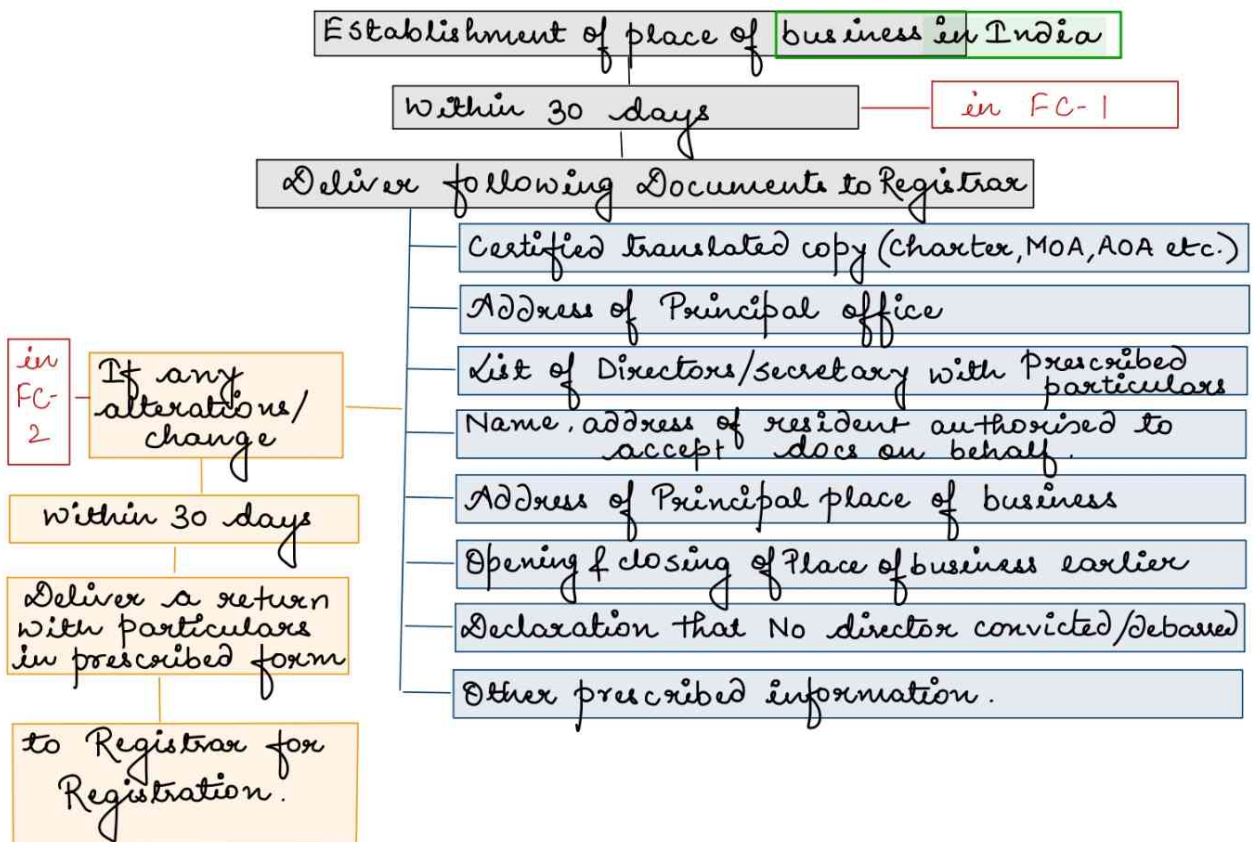 Establishment of place of business in India
Within 30 days
in FC-1
Deliver following Documents to Registrar
Certified translated copy (Charter, MOA, AOA etc.)
Address of Principal office
List of Directors/secretary with prescribed
particulars
Name, address of resident authorised to
accept docs on behalf.
Address of Principal place of business
Opening & closing of Place of business earlier
Declaration that No director convicted/debarred
Other prescribed information.
in
FC-
2
If any
alterations/
change
within 30 days
Deliver a return
with particulars
in prescribed form
to Registrar for
Registration.